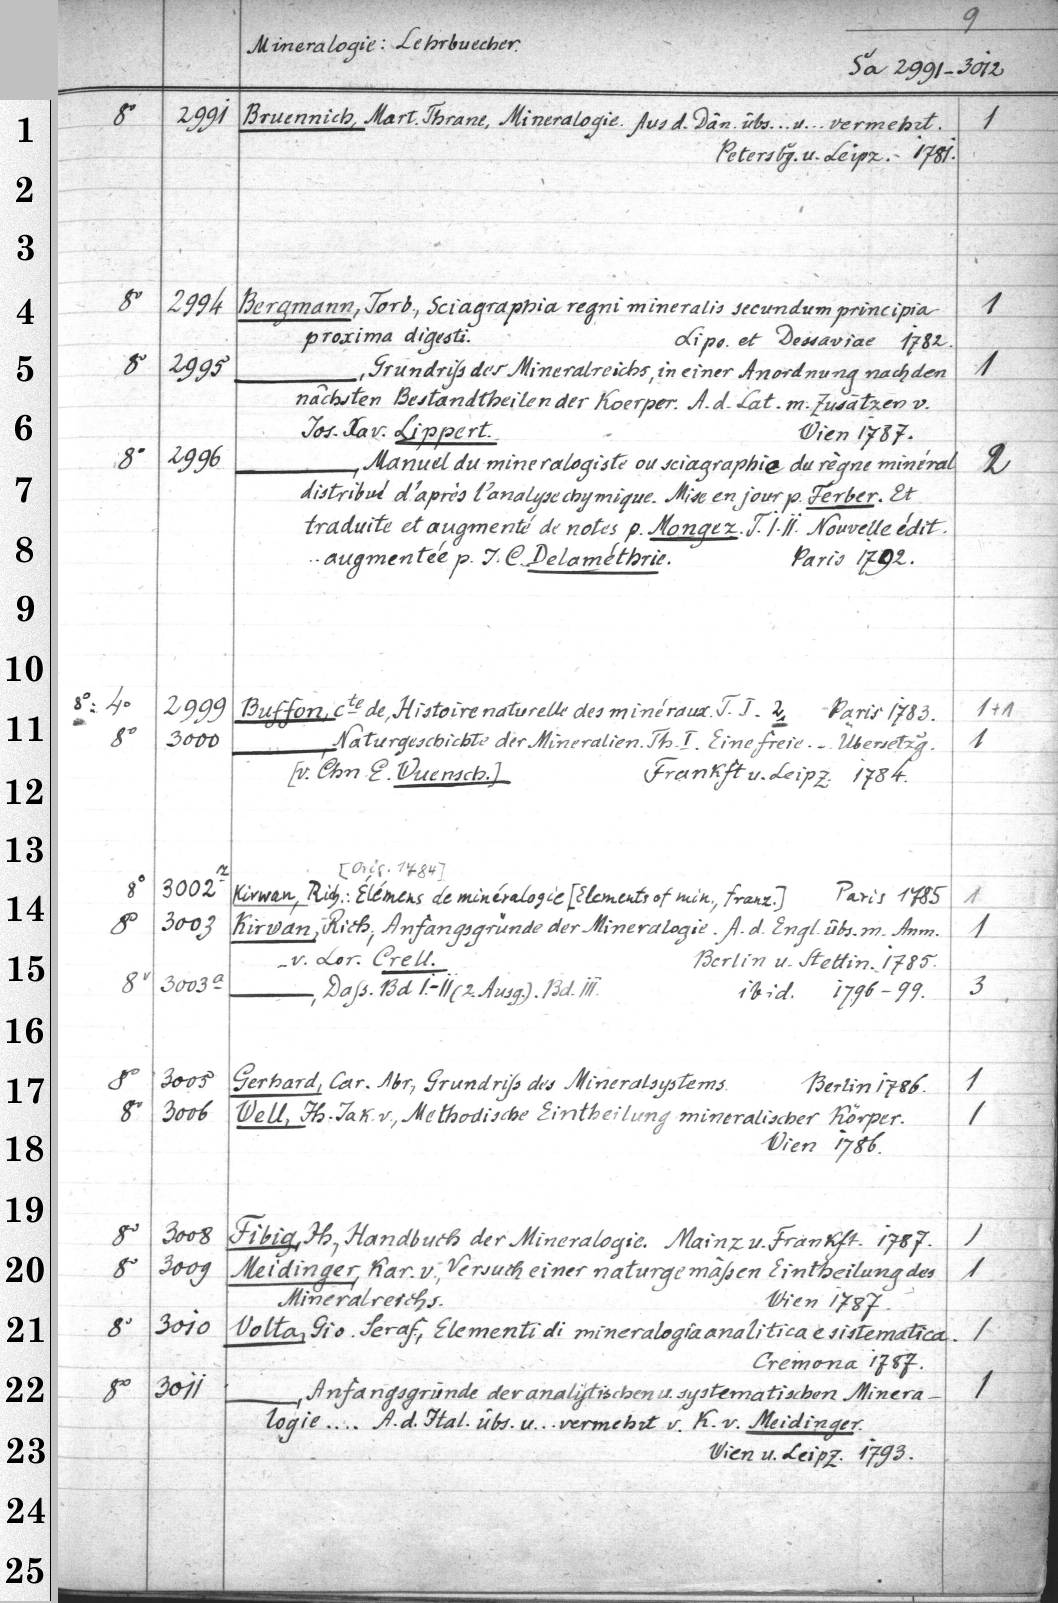 9
Mineralogie: Lehrbuecher.
Sa 2991-3012
1
8° 2991 Bruennich, Mart. Thrane, Mineralogie. Aus d. Dän. übs... u... vermehrt. 1
Petersbg. u. Leipz. - 1781.
2
3
4
8° 2994 Bergmann, Torb., Sciagraphia regni mineralis secundum principia 1
proxima digesti. Lips. et Dessaviae 1782.
5
8° 2995 ———, Grundriß des Mineralreichs, in einer Anordnung nach den 1
nächsten Bestandtheilen der Koerper. A. d. Lat. m. Zusätzen v.
6
Jos. Xav. Lippert. Wien 1787.
8° 2996 ———, Manuel du mineralogiste ou sciagraphie du règne minéral 2
7
distribué d'après l'analyse chymique. Mise en jour p. Ferber. Et
traduite et augmenté de notes p. Mongez. T. I-II. Nouvelle édit.
8
.. augmentée p. J. C. Delaméthrie. Paris 1792.
9
10
8°: 4° 2999 Buffon, Cte de, Histoire naturelle des minéraux. T. I. 2. Paris 1783. 1+1
11
8° 3000 ———, Naturgeschichte der Mineralien. Th. I. Eine freie... Übersetzg. 1
[v. Chn E. Wuensch.] Frankft u. Leipz. 1784.
12
13
[Orig. 1784]
8° 3002 z Kirwan, Rich.: Élémens de minéralogie [Elements of min., franz.] Paris 1785 1
14
8° 3003 Kirwan, Rich., Anfangsgründe der Mineralogie. A. d. Engl. übs. m. Anm. 1
15
- v. Lor. Crell. Berlin u. Stettin. 1785.
8° 3003 a ———, Dass. Bd I-II (2. Ausg.). Bd. III. ibid. 1796-99. 3
16
17
8° 3005 Gerhard, Car. Abr., Grundriß des Mineralsystems. Berlin 1786. 1
8° 3006 Well, Jh. Jak. v., Methodische Eintheilung mineralischer Körper. 1
18
Wien 1786.
19
8° 3008 Fibig, Jh., Handbuch der Mineralogie. Mainz u. Frankft. 1787. 1
20
8° 3009 Meidinger, Kar. v., Versuch einer naturgemäßen Eintheilung des 1
Mineralreichs. Wien 1787.
21
8° 3010 Volta, Gio. Seraf., Elementi di mineralogia analitica e sistematica. 1
Cremona 1787.
22
8° 3011 ———, Anfangsgründe der analytischen u. systematischen Minera- 1
logie.... A. d. Ital. übs. u... vermehrt v. K. v. Meidinger.
23
Wien u. Leipz. 1793.
24
25